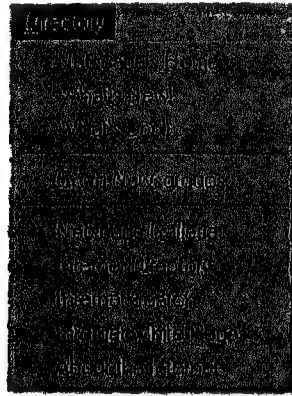 Directory
Home
What's New!
What's Cool!
Go to Newsgroups
Netscape Galleria
Internet Directory
Internet Search
Internet White Pages
About the Internet